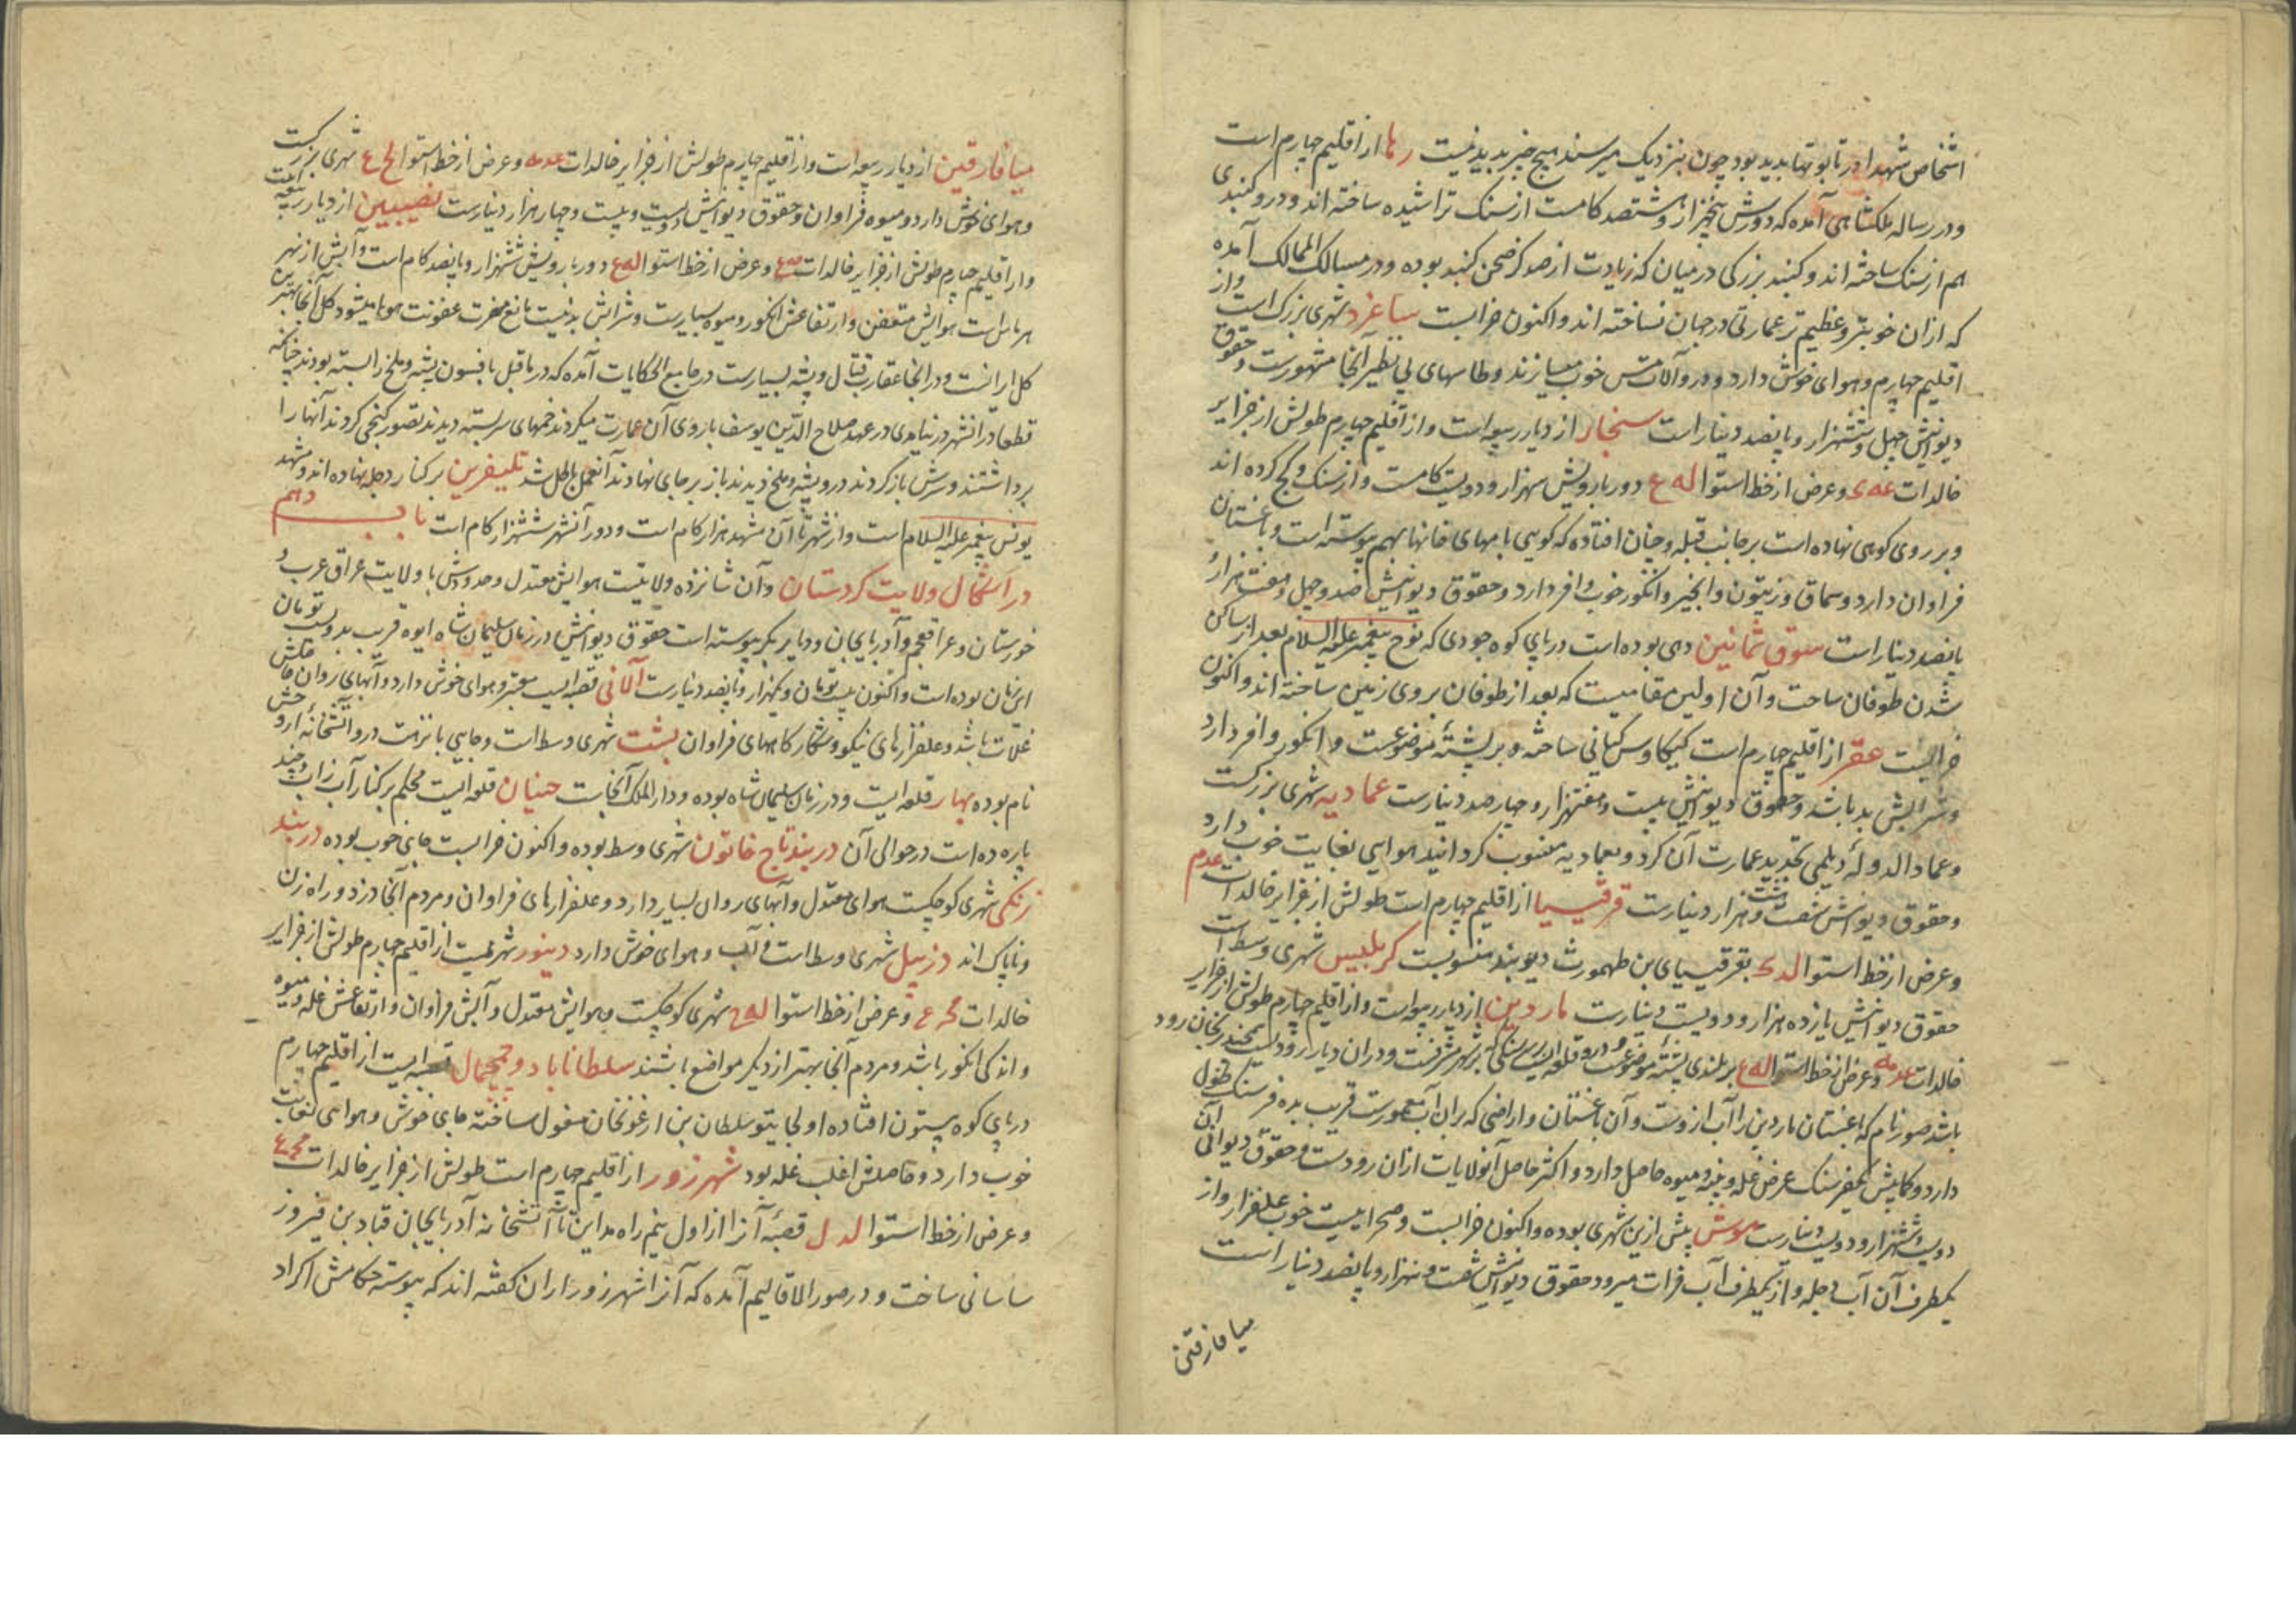 اشخاص شهدا در تابوتها بدید بود چون بنزدیک میرسند هیچ خبر بدید نیست رها از اقلیم چهارم است
و در رساله ملکشاهی آمده که دورش پنجهزار و ششصد کامست از سنک تراشیده ساخته اند و درو کنبدی
هم از سنک ساخته اند و کنبد بزرکی در میان که زیادت از صد کز صحن کنبد بوده و در مسالک الممالک آمده
که ازان خوبتر و عظیم تر عمارتی در جهان نساخته اند و اکنون خرابست ساعرد شهری بزرک است و از
اقلیم چهارم و هوای خوش دارد و درو آلات مس خوب میسازند و طاسهای بی نظیر آنجا مشهورست و حقوق
دیوانیش چهل و ششهزار و پانصد دینار است سنجار از دیار ربیعه است و از اقلیم چهارم طولش از جزایر
خالدات عه ی و عرض از خط استوا له ع دور بارویش سهزار و دویست کامست و از سنک و کج کرده اند
و بر روی کوهی نهاده است بر جانب قبله و چنان افتاده که کویی بامهای خانها بهم پیوسته است و باغستان
فراوان دارد و سماق و زیتون و انجیر و انکور خوب وافر دارد و حقوق دیوانیش صد و چهل و هفت هزار و
پانصد دینار است سوق ثمانین دهی بوده است در پای کوه جودی که نوح پیغمبر علیه السلام بعد از ساکن
شدن طوفان ساخت و آن اولین مقامیست که بعد از طوفان بر روی زمین ساخته اند و اکنون
خرابست عقر از اقلیم چهارم است کیکاوس کیانی ساخته و بر پشتهٔ موضوعست و انکور وافر دارد
و شرابش بد باشد و حقوق دیوانیش بیست و هفتهزار و چهارصد دینارست عمادیه شهری بزرکست
و عماد الدولهٔ دیلمی تجدید عمارت آن کرد و بعمادیه منسوب کردانید هوایی بغایت خوب دارد
و حقوق دیوانیش شصت و هشت هزار دینارست قرقیسیا از اقلیم چهارم است طولش از جزایر خالدات عدم
و عرض از خط استوا لد ک بقرقیسیای بن طهمورث دیوبند منسوبست کرملیس شهری وسط است
حقوق دیوانیش یازده هزار و دویست دینارست ماردین از دیار ربیعه است و از اقلیم چهارم طولش از جزایر
خالدات عدمه و عرض از خط استوا له ع بر بلندی پشتهٔ موضوعست و درو قلعه ایست بر سنکی که بر شهر مشرفست و دران دیار رودیست
باشد صور نام که باغستان ماردین را آب ازوست و آن باغستان و اراضی که بران آب معمورست قریب بده فرسنک طول
دارد و کمابیش یکفرسنک عرض غله و پنبه و میوه حاصل دارد و اکثر حاصل آنولایات ازان رودست و حقوق دیوانی آن
دویست و ششهزار و دویست دینارست موش پیش ازین شهری بوده و اکنون خرابست و صحرایست خوب علفزار و از
یکطرف آن آب دجله و از یکطرف آب فرات میرود حقوق دیوانیش شصت و نهزار و پانصد دینار است
میافارقین
میافارقین از دیار ربیعه است و از اقلیم چهارم طولش از جزایر خالدات عدمه و عرض از خط استوا لح ع شهری بزرکست
و هوای خوش دارد و میوه فراوان و حقوق دیوانیش دویست و بیست و چهار هزار دینارست نصیبین از دیار ربیعه است
و از اقلیم چهارم طولش از جزایر خالدات و عرض از خط استوا له ع دور بارویش ششهزار و پانصد کام است و آبش از نهر
هرماس است هوایش متعفن و ارتفاعش انکور و میوه بسیارست و شرابش بد نیست مانع مضرت عفونت هوا میشود کل آنجا بهترین
کل ایرانست و در آنجا عقارب قتال و پشه بسیارست در جامع الحکایات آمده که در ماقبل بافسون پشه و ملخ را بسته بودند چنانکه
قطعا در آنشهر در نیامدی در عهد صلاح الدین یوسف باروی آن عمارت میکردند خمهای سر بسته دیدند تصور کنجی کردند آنها را
برداشتند و سرش باز کردند درو پشه و ملخ دیدند باز بر جای نهادند آنعمل باطل شد تلیفرین بر کنار دجله نهاده اند و مشهد
یونس پیغمبر علیه السلام است و از شهر تا آن مشهد هزار کام است و دور آنشهر ششهزار کام است باب دهم
در اشکال ولایت کردستان و آن شانزده ولایتست هوایش معتدل و حدودش با ولایت عراق عرب و
خوزستان و عراق عجم و آذربایجان و دیار بکر پیوسته است حقوق دیوانیش در زمان سلیمان شاه ایوه قریب بدویست تومان
این زمان بوده است و اکنون بیست تومان و یکهزار و پانصد دینارست آلانی قصبه ایست معتبر و هوای خوش دارد و آبهای روان حاصلش
غلات باشد و علفزارهای نیکو و شکارکاههای فراوان بشت شهری وسط است و جایی با نزهت درو آتشخانه اروخش
نام بوده بهار قلعه ایست و در زمان سلیمان شاه بوده و دار الملک آنجاست حنیان قلعه ایست محکم بر کنار آب زاب و چند
پاره ده است در حوالی آن دربند تاج خاتون شهری وسط بوده و اکنون خرابست جایی خوب بوده دربند
زنکی شهری کوچکست هوای معتدل و آبهای روان بسیار دارد و علفزارهای فراوان و مردم آنجا دزد و راه زن
و ناپاک اند دزبیل شهری وسط است و آب و هوای خوش دارد دینور شهریست از اقلیم چهارم طولش از جزایر
خالدات و عرض از خط استوا له ح شهری کوچکست و هوایش معتدل و آبش فراوان و ارتفاعش غله و میوه
و اندکی انکور باشد و مردم آنجا بهتر از دیکر مواضع باشند سلطاناباد و چمچمال قصبه ایست از اقلیم چهارم
در پای کوه بیستون افتاده اولجایتو سلطان بن ارغونخان مغول ساخته جای خوش و هوایی بغایت
خوب دارد و حاصلش اغلب غله بود شهرزور از اقلیم چهارم است طولش از جزایر خالدات
و عرض از خط استوا لد ل قصبهٔ آنرا از اول نیم راه مداین تا آتشخانه آذربایجان قباد بن فیروز
ساسانی ساخت و در صور الاقالیم آمده که آنرا شهرزور ازان کفته اند که پیوسته حکامش اکراد